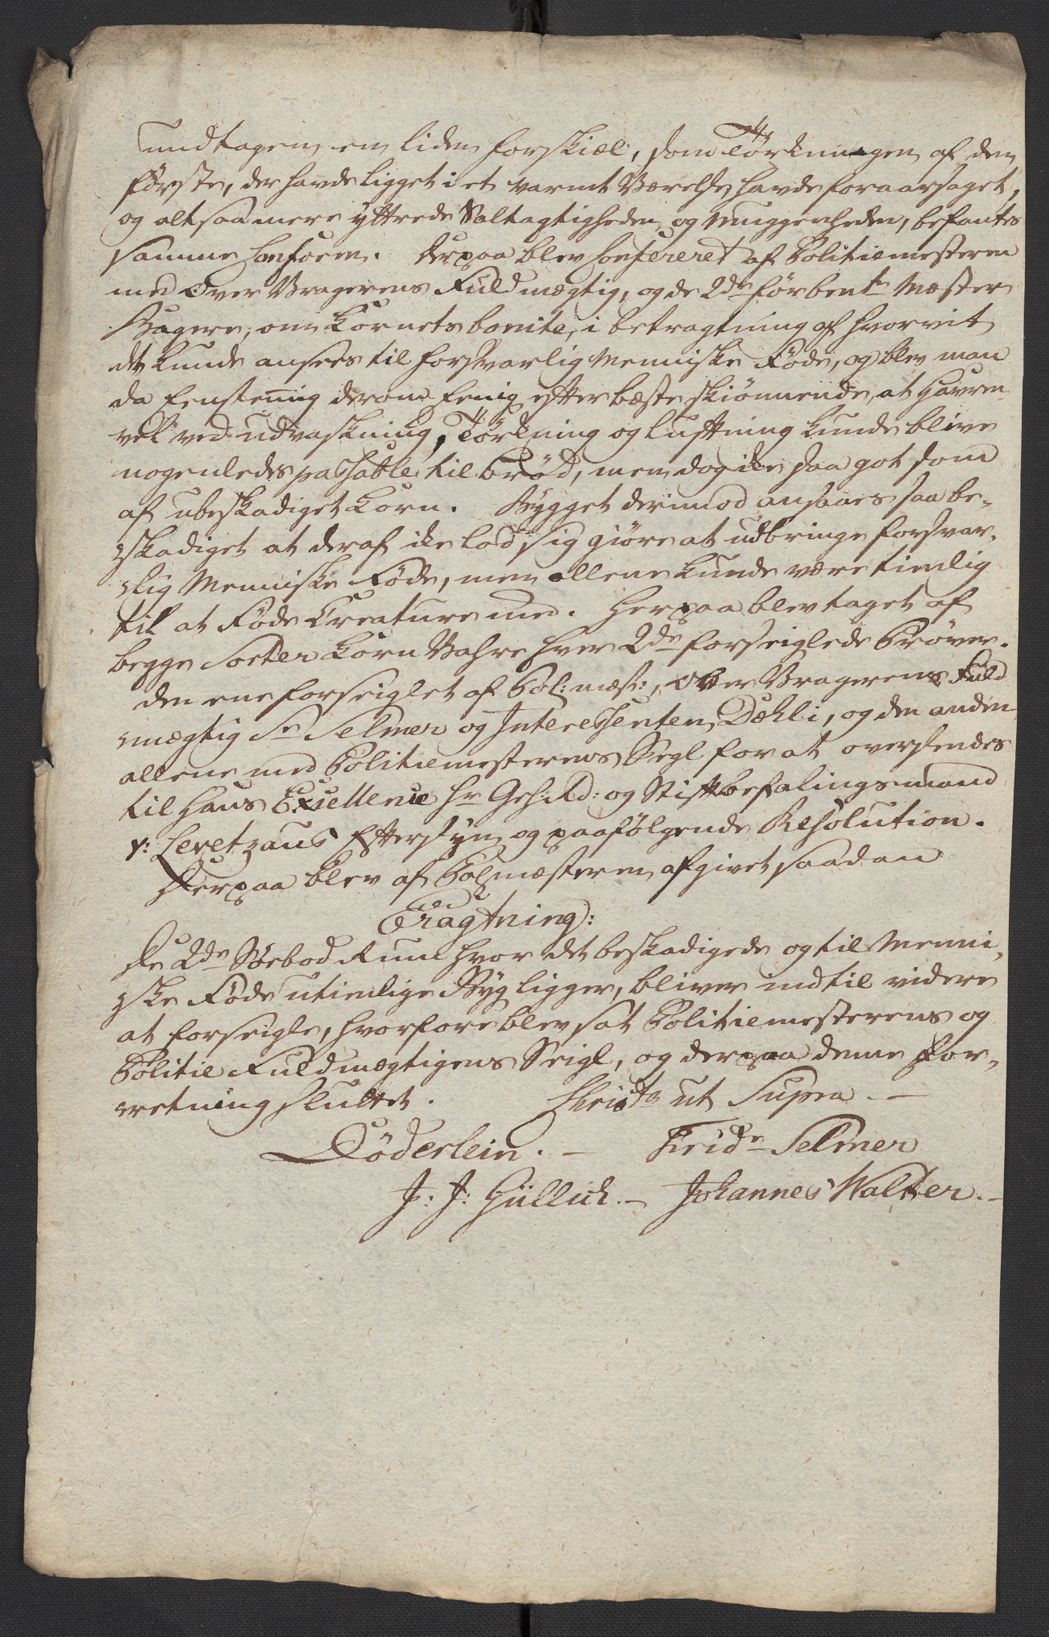 undtagen en liden forskiæl, som Tørkningen af den
første, der havde ligget i et varmt Værelse, havde foraarsaget,
og altsaa mere yttrede Saltagtigheden og Muggenheden, befantes
samme conform. Derpaa blev confereret af Politiemesteren
med Over Vragerens Fuldmægtig, og de 2de førbente Mæster
Bagere, om Kornets bonite, i betragtning af hvorvit
det kunde ansees til forsvarlig Menniske Føde, og blev man
da Eenstemig derom Eenig, efter bæste skiønnende, at Havren
vel ved udvaskning, Tørkning og luftning kunde blive
nogenledes passable til brød, men dog ike saa got som
af ubeskadiget Korn. Bygget derimod ansaaes saa be-
skadiget at deraf ike lod sig giøre at udbringe forsvar-
lig Menniske Føde, men allene kunde være tienlig
til at føde Creature med. Herpaa blev taget af
begge Sorter Korn Vahre hver 2de forseiglede Prøver.
den ene forseiglet af Pol: mest:, Over Vragerens Fuld
mægtig Sr Selmer og Interessenten Dæhli, og den anden
allene med Politiemesterens Segl for at oversendes
til Hans Excellence Hr Geh: Rd: og Stiftbefalingsmand
v: Levetzaus Eftersyn og paafølgende Resolution.
Derpaa blev af Polmæsteren afgivet saadan
Eragtning:
De 2de Søebod Rum hvor det beskadigede og til Menni,
ske Føde utienlige Byg ligger, bliver indtil videre
at forseigle, hvorfore blev sat Politiemesterens og
Politie Fuldmægtigens Seigl, og derpaa denne For-
retning sluttet. Skrids ut Supra. —
Döderlein. — Fridr Selmer
J: J: Güllich. — Johannes Walter. —